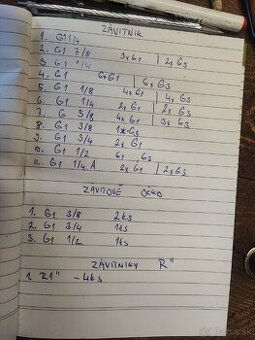 ZÁVITNÍK
1. G1 1/4
2. G1 7/8 3xG1 | 2xG3
3. G1 1/4
4. G1 6xG1 | 6xG3
5. G1 1/8 4xG1 | 4xG3
6. G1 1/4 2xG1 | 2xG3
7. G 5/8 4xG1 | 3xG3
8. G1 3/8
9. G1 3/4 2xG1
10. G1 1/2 G1 G3
11. G1 1/4 A 2xG1 | 2xG3
ZÁVITOVÉ OČKO
1. G1 3/8 2ks
2. G1 3/4 1ks
3. G1 1/2 1ks
ZÁVITNÍKY R"
1. R1" - 4ks
bazos.sk